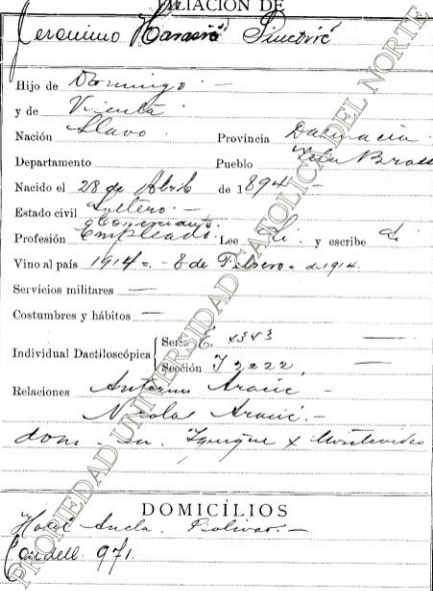 FILIACIÓN DE
Jeronimo Harasić Sinčević
Hijo de Domingo.—
y de Vicenta
Nación Slavo Provincia Dalmacia
Departamento Pueblo Brass
Nacido el 28 de Abril de 1894—
Estado civil Soltero.—
Comerciante.
Profesión Empleado. Lee Si. y escribe Si
Vino al país 1914 = - 8 de Febrero = de 1914.
Servicios militares —
Costumbres y hábitos —
Individual Dactiloscópica { Serie E. 4343 —
Sección I 2222, —
Relaciones Antonio Aracic —
Nicola Aracic.—
dom. en Iquique x Montevideo
DOMICILIOS
Hotel Ancla. Bolivar.—
971.
PROPIEDAD UNIVERSIDAD CATOLICA DEL NORTE